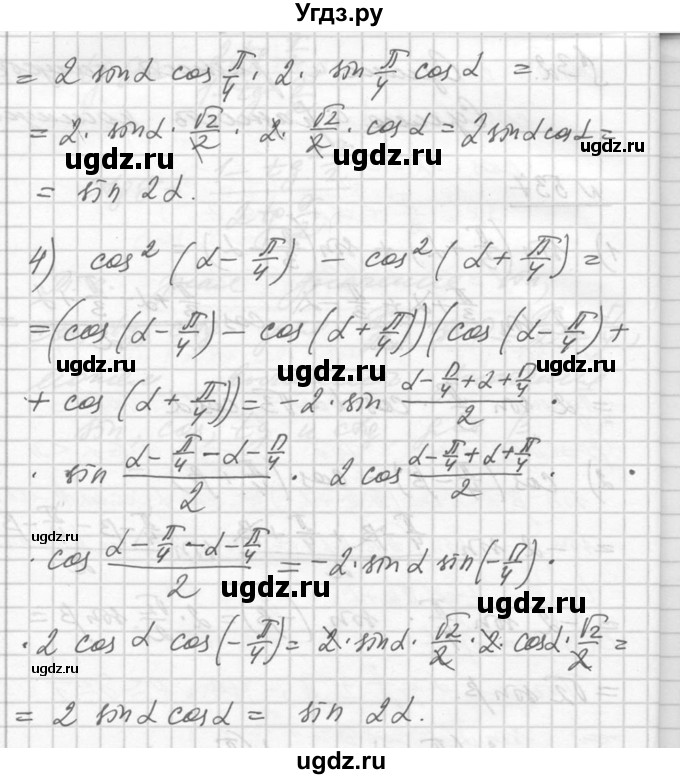 Угдз.ру
= 2 sinα cos π/4 · 2 · sin π/4 cos α =
= 2 · sinα · √2/2 · 2 · √2/2 · cos α = 2 sinα cosα =
ugdz.ru
ugdz.ru
= sin 2α.
ugdz.ru
№ 537
4) cos² (α − π/4) − cos² (α + π/4) =
ugdz.ru
= (cos (α − π/4) − cos (α + π/4)) (cos (α − π/4) +
ugdz.ru
ugdz.ru
+ cos (α + π/4)) = −2 · sin (α − π/4 + α + π/4)/2 ·
ugdz.ru
· sin (α − π/4 − α − π/4)/2 · 2 cos (α − π/4 + α + π/4)/2 · ·
ugdz.ru
ugdz.ru
· cos (α − π/4 − α − π/4)/2 = −2 · sin α sin (−π/4) ·
ugdz.ru
ugdz.ru
· 2 cos α cos (−π/4) = 2 · sinα · √2/2 · 2 · cosα · √2/2 =
ugdz.ru
ugdz.ru
= 2 sinα cosα = sin 2α.
ugdz.ru